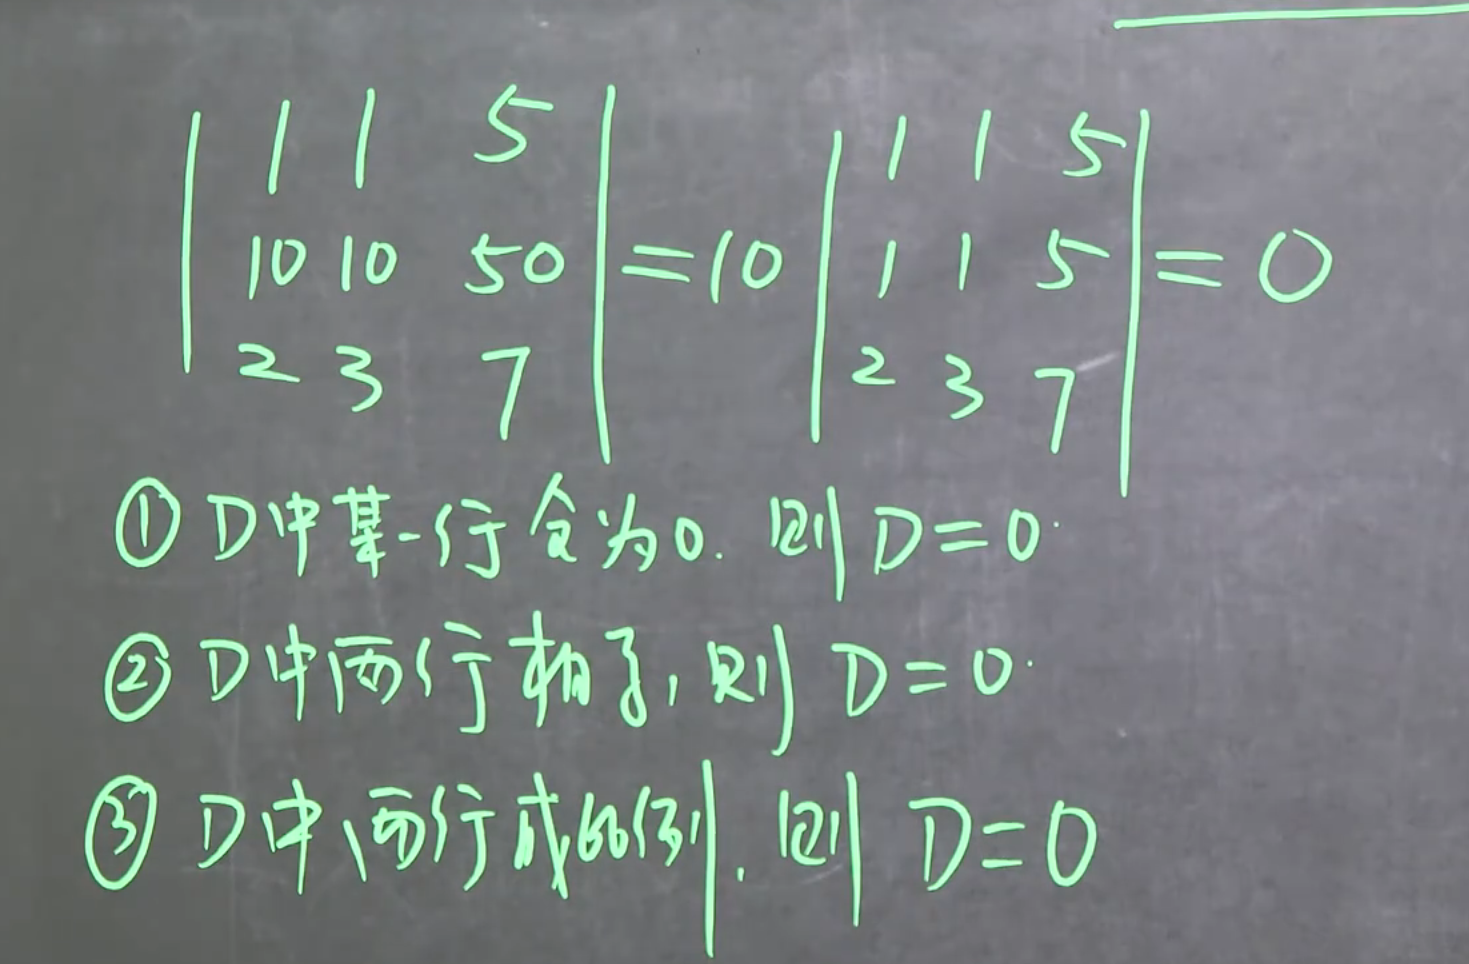 | 1 1 5 | | 1 1 5 |
| 10 10 50 | = 10 | 1 1 5 | = 0
| 2 3 7 | | 2 3 7 |
① D中某一行全为0. 则 D=0.
② D中两行相等, 则 D=0.
③ D中两行成比例. 则 D=0